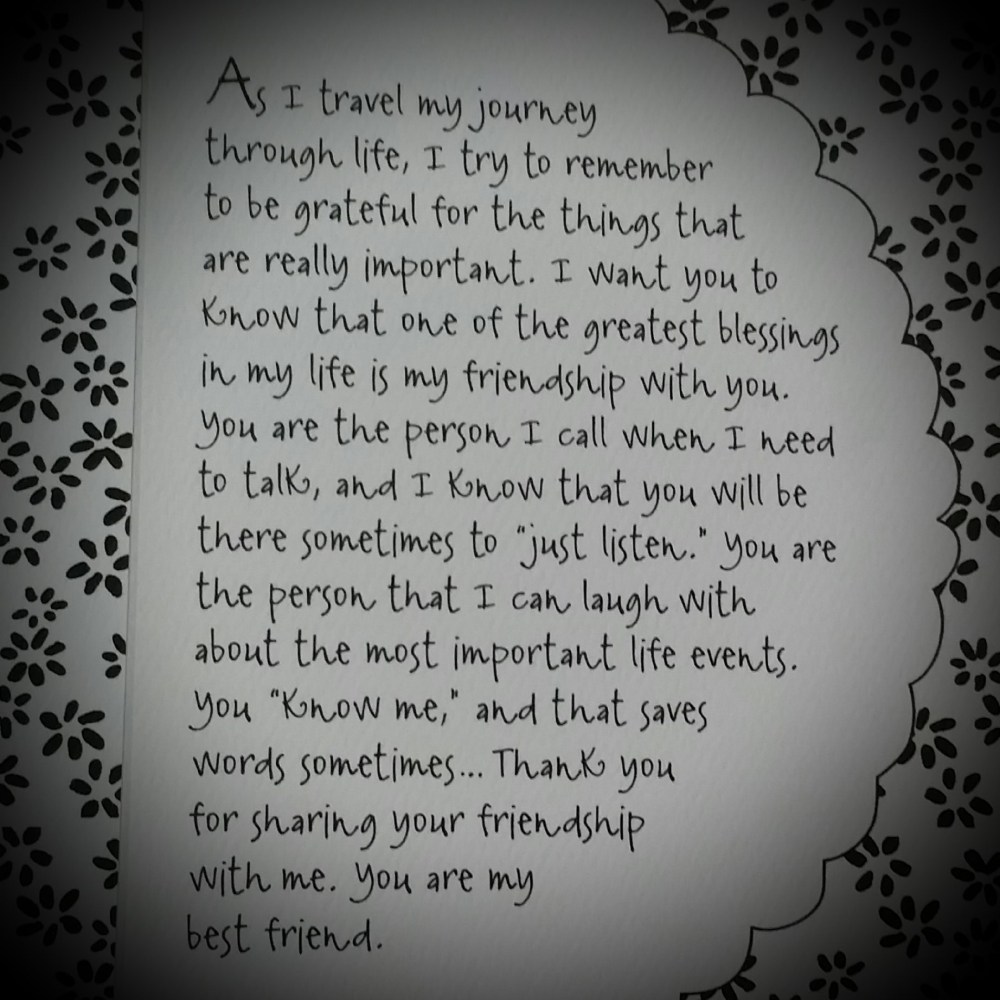 As I travel my journey
through life, I try to remember
to be grateful for the things that
are really important. I want you to
know that one of the greatest blessings
in my life is my friendship with you.
You are the person I call when I need
to talk, and I know that you will be
there sometimes to "just listen." You are
the person that I can laugh with
about the most important life events.
You "know me," and that saves
words sometimes... Thank you
for sharing your friendship
with me. You are my
best friend.